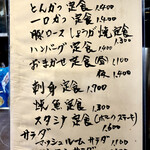 とんカツ定食 1.400
一口カツ定食 1.400
豚ロースしょうが焼定食 1.300
ハンバーグ定食 1.400
おまかせ定食(昼) 1.100
夜 1.400
刺身定食 1.700
焼魚定食 1.300
スタミナ定食(ポークステーキ) 1.600
サラダ
マッシュルームサラダ